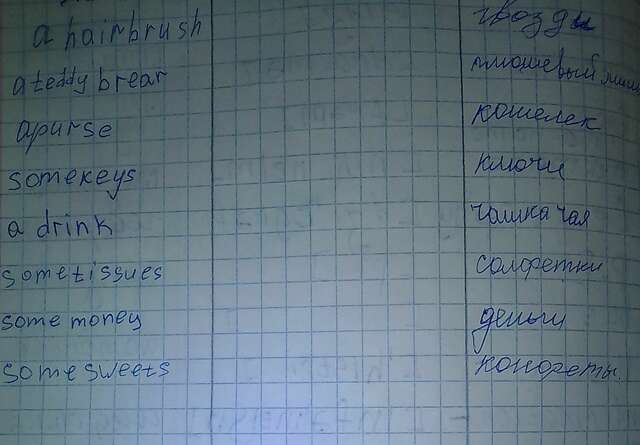 a hairbrush гвозды
a teddy brear плюшевый
a purse кошелек
some keys ключи
a drink чашка чая
some tissues салфетки
some money деньги
some sweets конфеты.